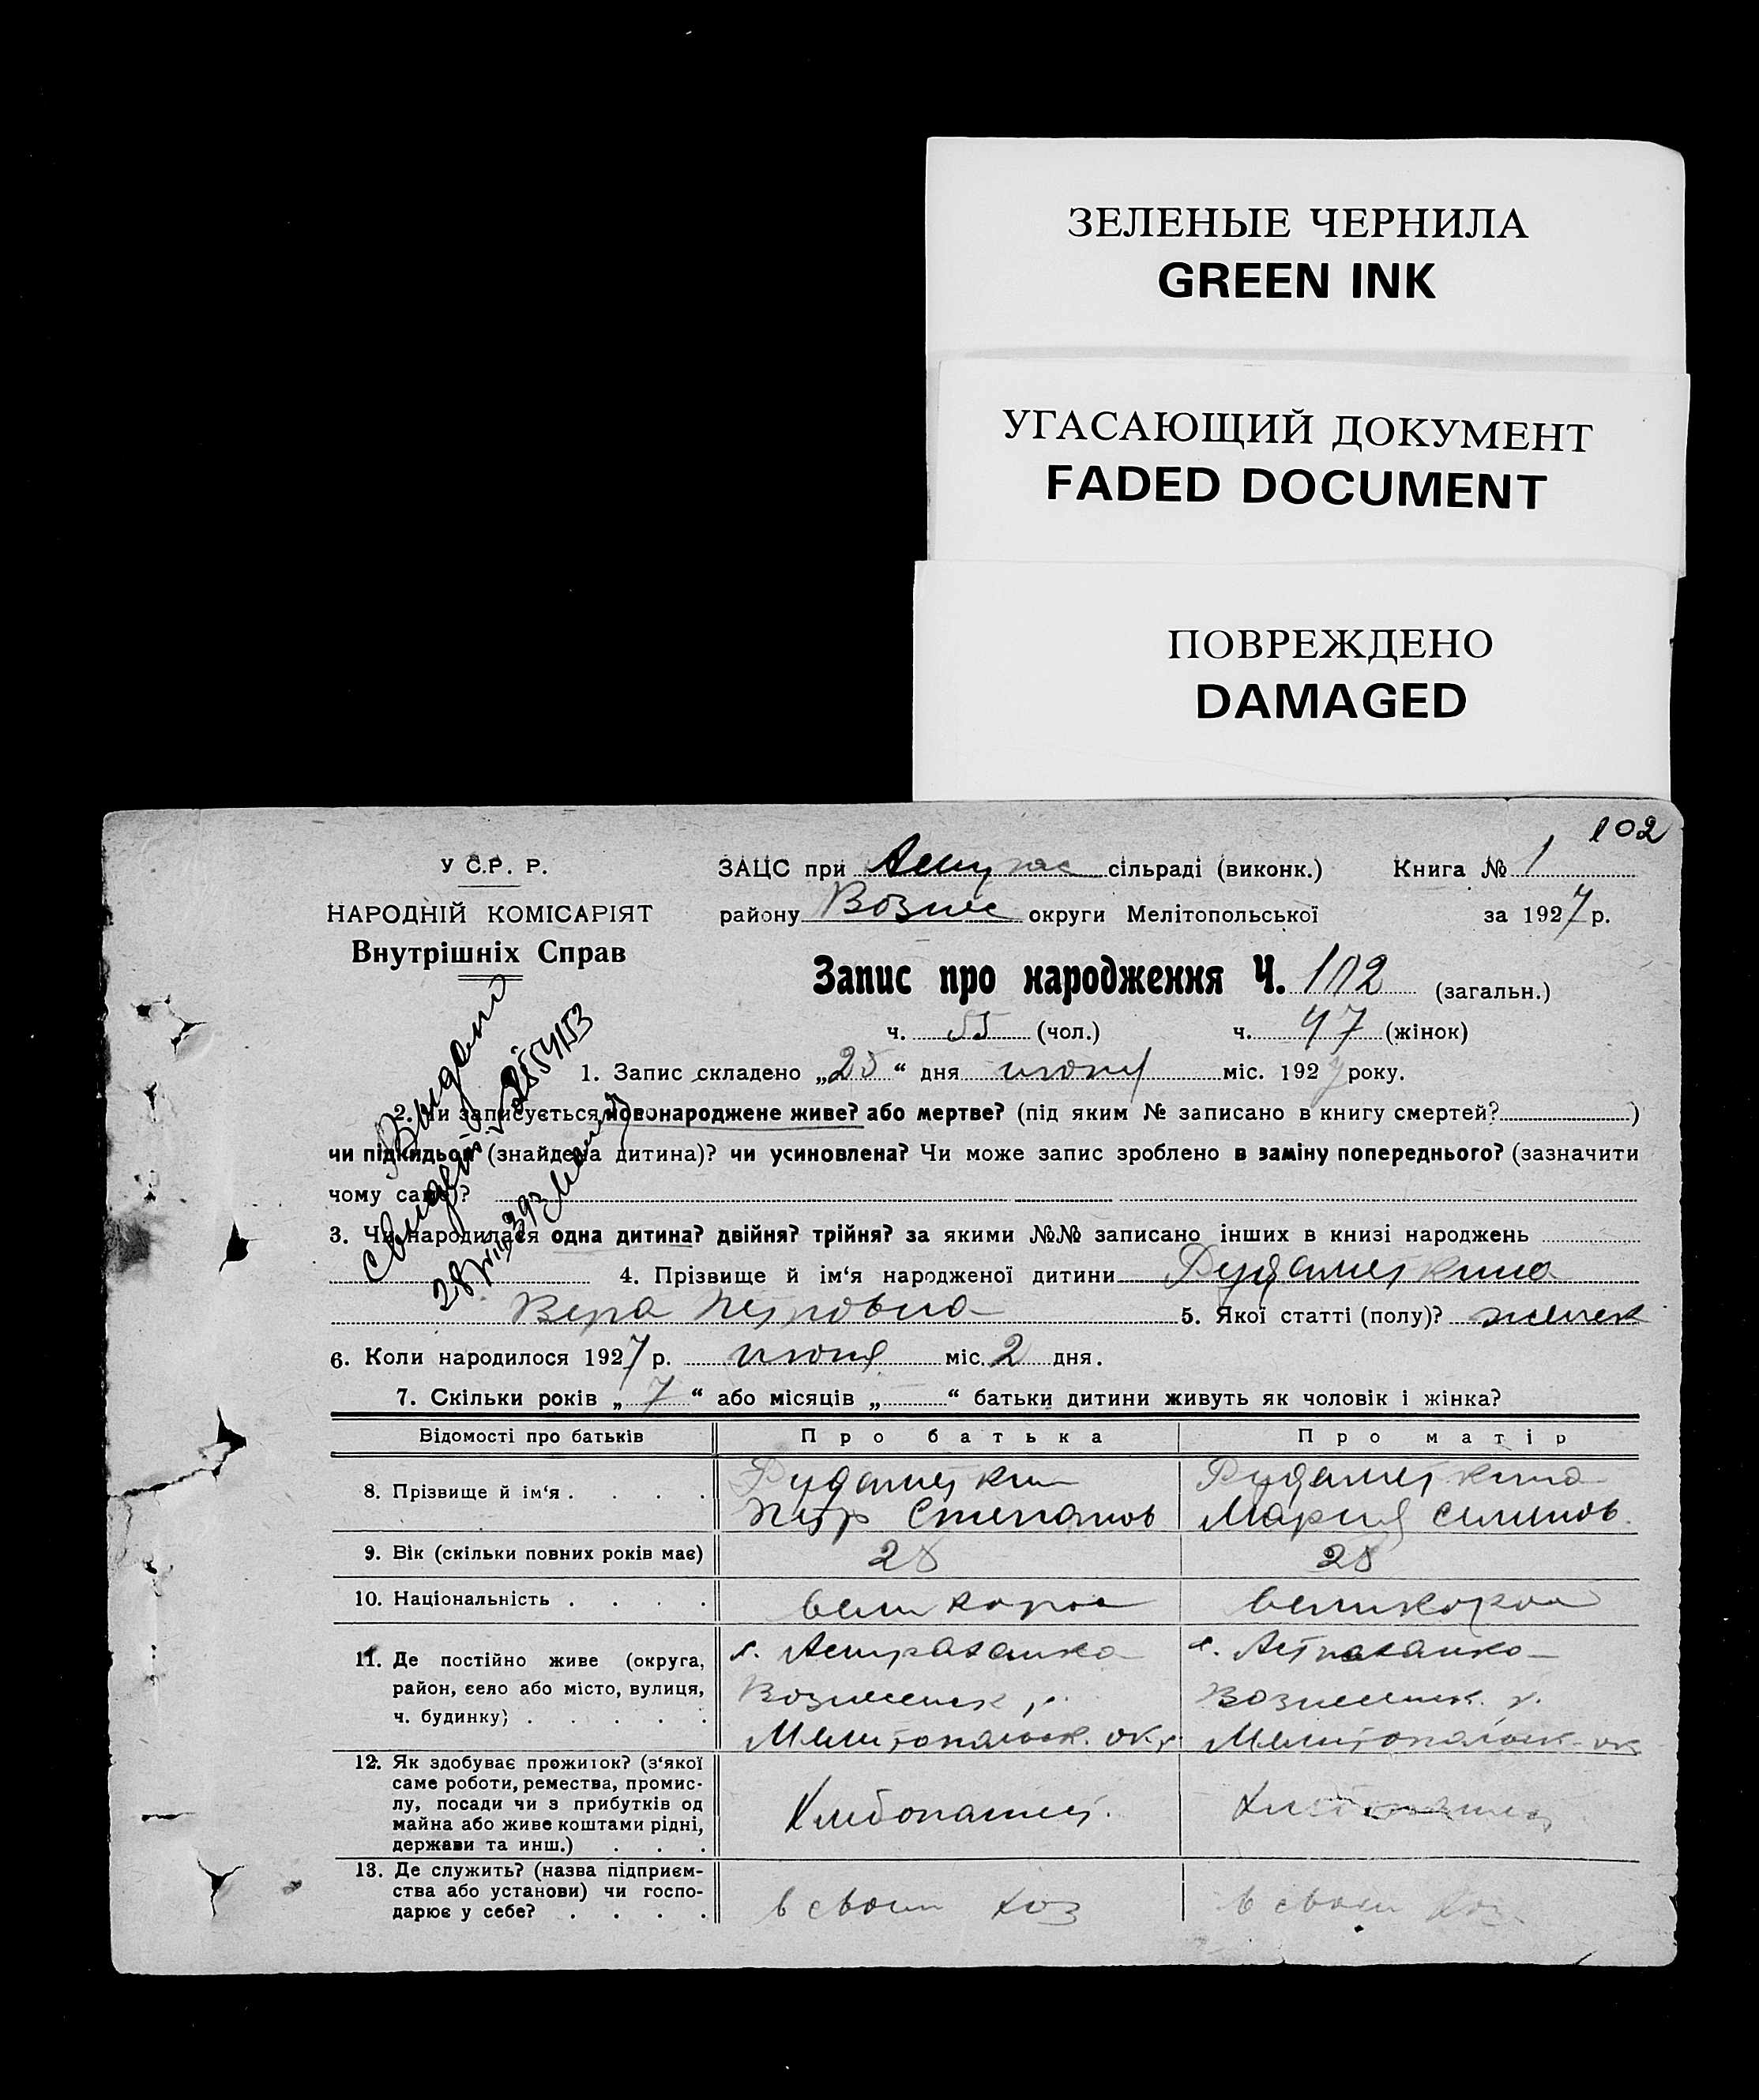 ЗЕЛЕНЫЕ ЧЕРНИЛА
GREEN INK
УГАСАЮЩИЙ ДОКУМЕНТ
FADED DOCUMENT
ПОВРЕЖДЕНО
DAMAGED
102
У С.Р. Р.
НАРОДНІЙ КОМІСАРІЯТ
Внутрішніх Справ
ЗАЦС при сільраді (виконк.) Книга № 1
району Вознес округи Мелітопольської за 1927 р.
Запис про народження Ч. 102 (загальн.)
ч. 55 (чол.) ч. 47 (жінок)
1. Запис складено „25“ дня июня міс. 1927 року.
2. Чи записується новонароджене живе? або мертве? (під яким № записано в книгу смертей? )
чи підкидьок (знайдена дитина)? чи усиновлена? Чи може запис зроблено в заміну попереднього? (зазначити
чому саме)?
3. Чи народилася одна дитина? двійня? трійня? за якими №№ записано інших в книзі народжень
4. Прізвище й ім‘я народженої дитини Рудаметкина
Вера Петровна 5. Якої статті (полу)? женск
6. Коли народилося 1927 р. июня міс. 2 дня.
7. Скільки років „ 7 “ або місяців „ “ батьки дитини живуть як чоловік і жінка?
Відомості про батьків Про батька Про матір
8. Прізвище й ім‘я . . . . Рудаметкин Рудаметкина
Петр Степанов Мария Семенов.
9. Вік (скільки повних років має) 28 28
10. Національність . . . . великорос великорос
11. Де постійно живе (округа, район, село або місто, вулиця, ч. будинку) . . . . .
с. Астраханка с. Астраханка
Вознесенск р. Вознесенск. р.
Мелитопольск. окр Мелитопольск. ок
12. Як здобуває прожиток? (з‘якої саме роботи, ремества, промислу, посади чи з прибутків од майна або живе коштами рідні, держави та инш.) . . .
Хлебопашец. Хлебопашец
13. Де служить? (назва підприємства або установи) чи господарює у себе? . . . .
в своем хоз в своем хоз.